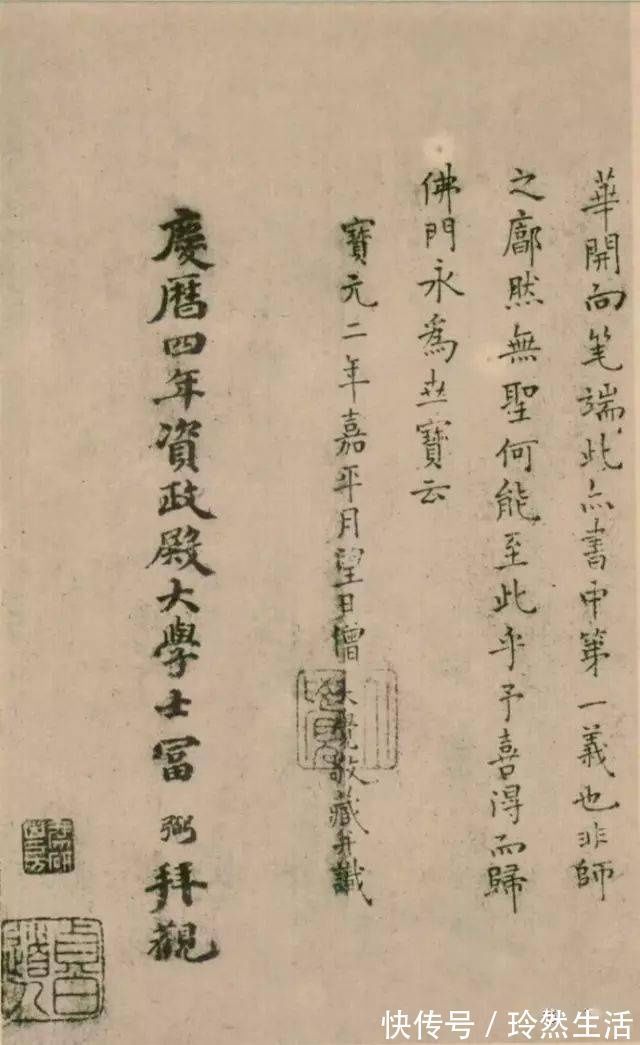 華開向笔端此亦書中第一義也非師
之廓然無聖何能至此乎予喜得而歸
佛門永為世寶云
寶元二年嘉平月望日僧大覺敬藏并識
慶曆四年資政殿大學士富弼拜觀
快传号／玲然生活